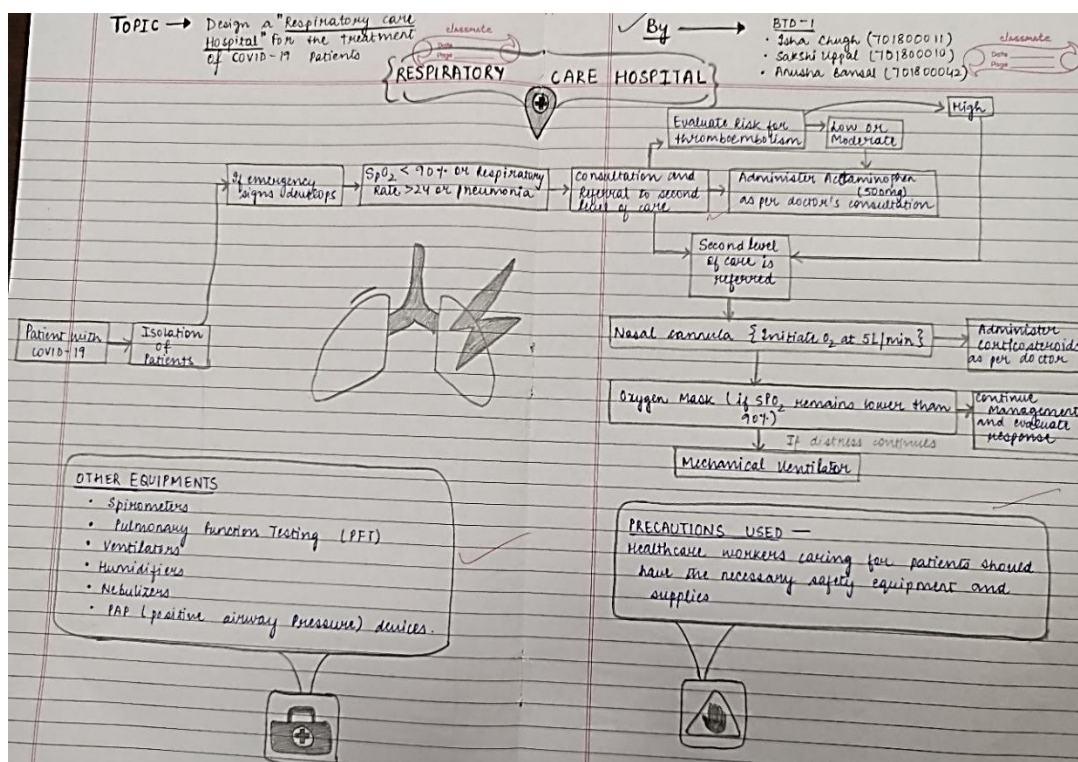 TOPIC → Design a "Respiratory care
Hospital" for the treatment
of COVID-19 Patients
classmate
Date
Page
By →
BTD-1
• Isha Chugh (701800011)
• Sakshi Uppal (701800010)
• Anusha Bansal (701800042)
classmate
Date
Page
RESPIRATORY CARE HOSPITAL
Patient with
COVID-19
Isolation
of
Patients
If emergency
signs develops
SpO2 < 90% or Respiratory
Rate >24 or pneumonia
Consultation and
Referral to second
level of care
Evaluate Risk for
thromboembolism
Low or
Moderate
High
Administer Acetaminophen
(500mg)
as per doctor's consultation
Second level
of care is
referred
Nasal cannula {Initiate O2 at 5L/min}
Administer
corticosteroids
as per doctor
Oxygen Mask (if SPO2 remains lower than
90%)
Continue
Management
and evaluate
response
If distress continues
Mechanical Ventilator
OTHER EQUIPMENTS
• Spirometers
• Pulmonary Function Testing (PFT)
• Ventilators
• Humidifiers
• Nebulizers
• PAP (positive airway Pressure) devices.
PRECAUTIONS USED —
Healthcare workers caring for patients should
have the necessary safety equipment and
supplies